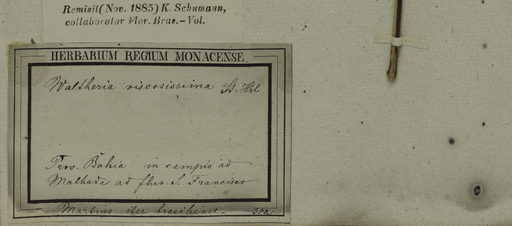 Remisit (Nov. 1885) K. Schumann,
collaborator Flor. Bras.–Vol.
HERBARIUM REGIUM MONACENSE.
Waltheria viscosissima St. Hil
Prov. Bahia in campis ad
Malhada ad fluv. S. Francisco
Martius iter brasiliense.